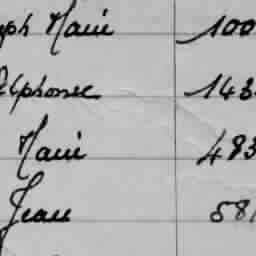 ph Marie 100
Alphonse 143
Marie 483
Jean 58